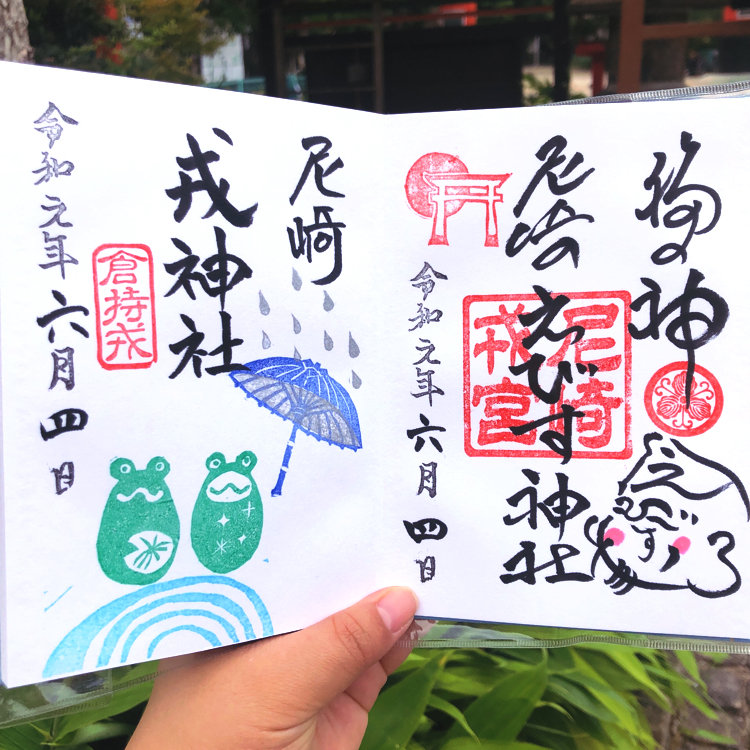 福の神
尼崎の
えびす神社
尼崎
戎宮
令和元年六月四日
えびす
尼崎
戎神社
倉持戎
令和元年六月四日